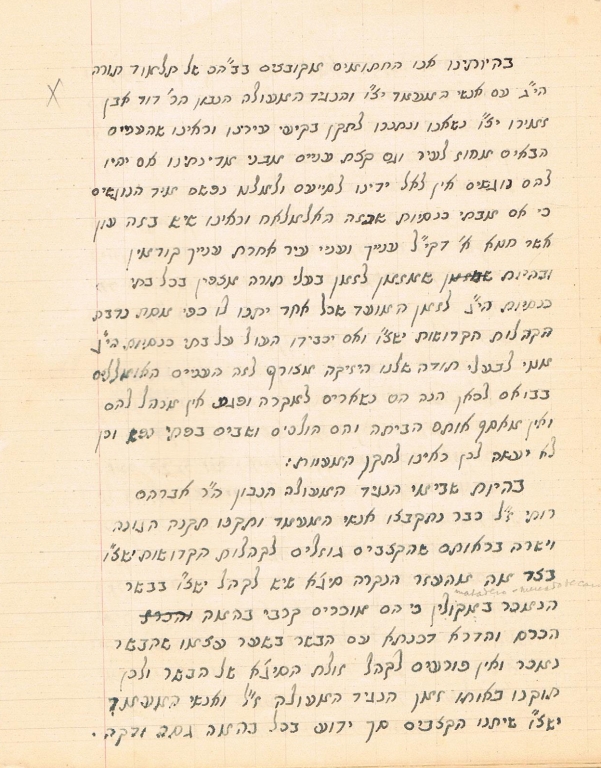 בהיותינו אנו החתומים מקובצים בב"הס של תלמוד תורה
הי"ג עם אנשי המעמד יצ"ו והנגיד המעולה הנבון הר' דוד אבן
זמירו יצ"ו נשאנו ונתננו לתקן בקיעי עירינו וראינו שהעניים
הבאים מחוץ לעיר וגם קצת עניים מבני מדינתינו אם יהיו
להם נוגשים אין לאל ידינו לסייעם ולמלט נפשם מיד הנוגשים
כי אם מבתי כנסיות שבזה האלמלאח וראינו שיש בזה עון
אשר חטא א' דקי"ל ענייך ועניי עיר אחרת ענייך קודמין
ובהיות שמזמן לזמן בעלי תורה מצפין בכל בתי
כנסיות הי"ג לזמן המועד שכל אחד יתנו לו כפי מסת נדבת
הקהלות הקדושות ישצ"ו ואם יכבידו העול על בתי כנסיות הי"ג
ממי לבעלי תורה שלנו היזיקה מצורף לזה העניים האומללים
בבואם לכאן הנה הם נשארים למקרה ופגע אין מנהל להם
ואין מאסף אותם הביתה והם הולכים ושבים בפחי נפש וכן
לא יעשה לכן ראינו לתקן המעוות:
בהיות שבימי הנגיד המעולה הנבון ה"ר אברהם
רותי ז"ל כבר נתקבצו אנשי המעמד ותקנו תקנה הגונה
וישרה בראותם שהקצבים גוזלים לקהלות הקדושות ישצ"ו
בצד מה מהעזר הנקרה סיצ'א שיש לקהל ישצ"ו בבשר
הנמכר במקולין כי הם מוכרים קרבי בהמה
הכרס והדרא דכנתא עם הבשר בשער עצמו שהבשר
נמכר ואין פורעים לקהל זולת הסיצ'א של הבשר ולכן
תוקנו באותו זמן הנגיד המעולה ז"ל ואנשי המעמד
ישצ"ו שיתנו הקצבים סך ידוע בכל בהמה גסה ודקה.